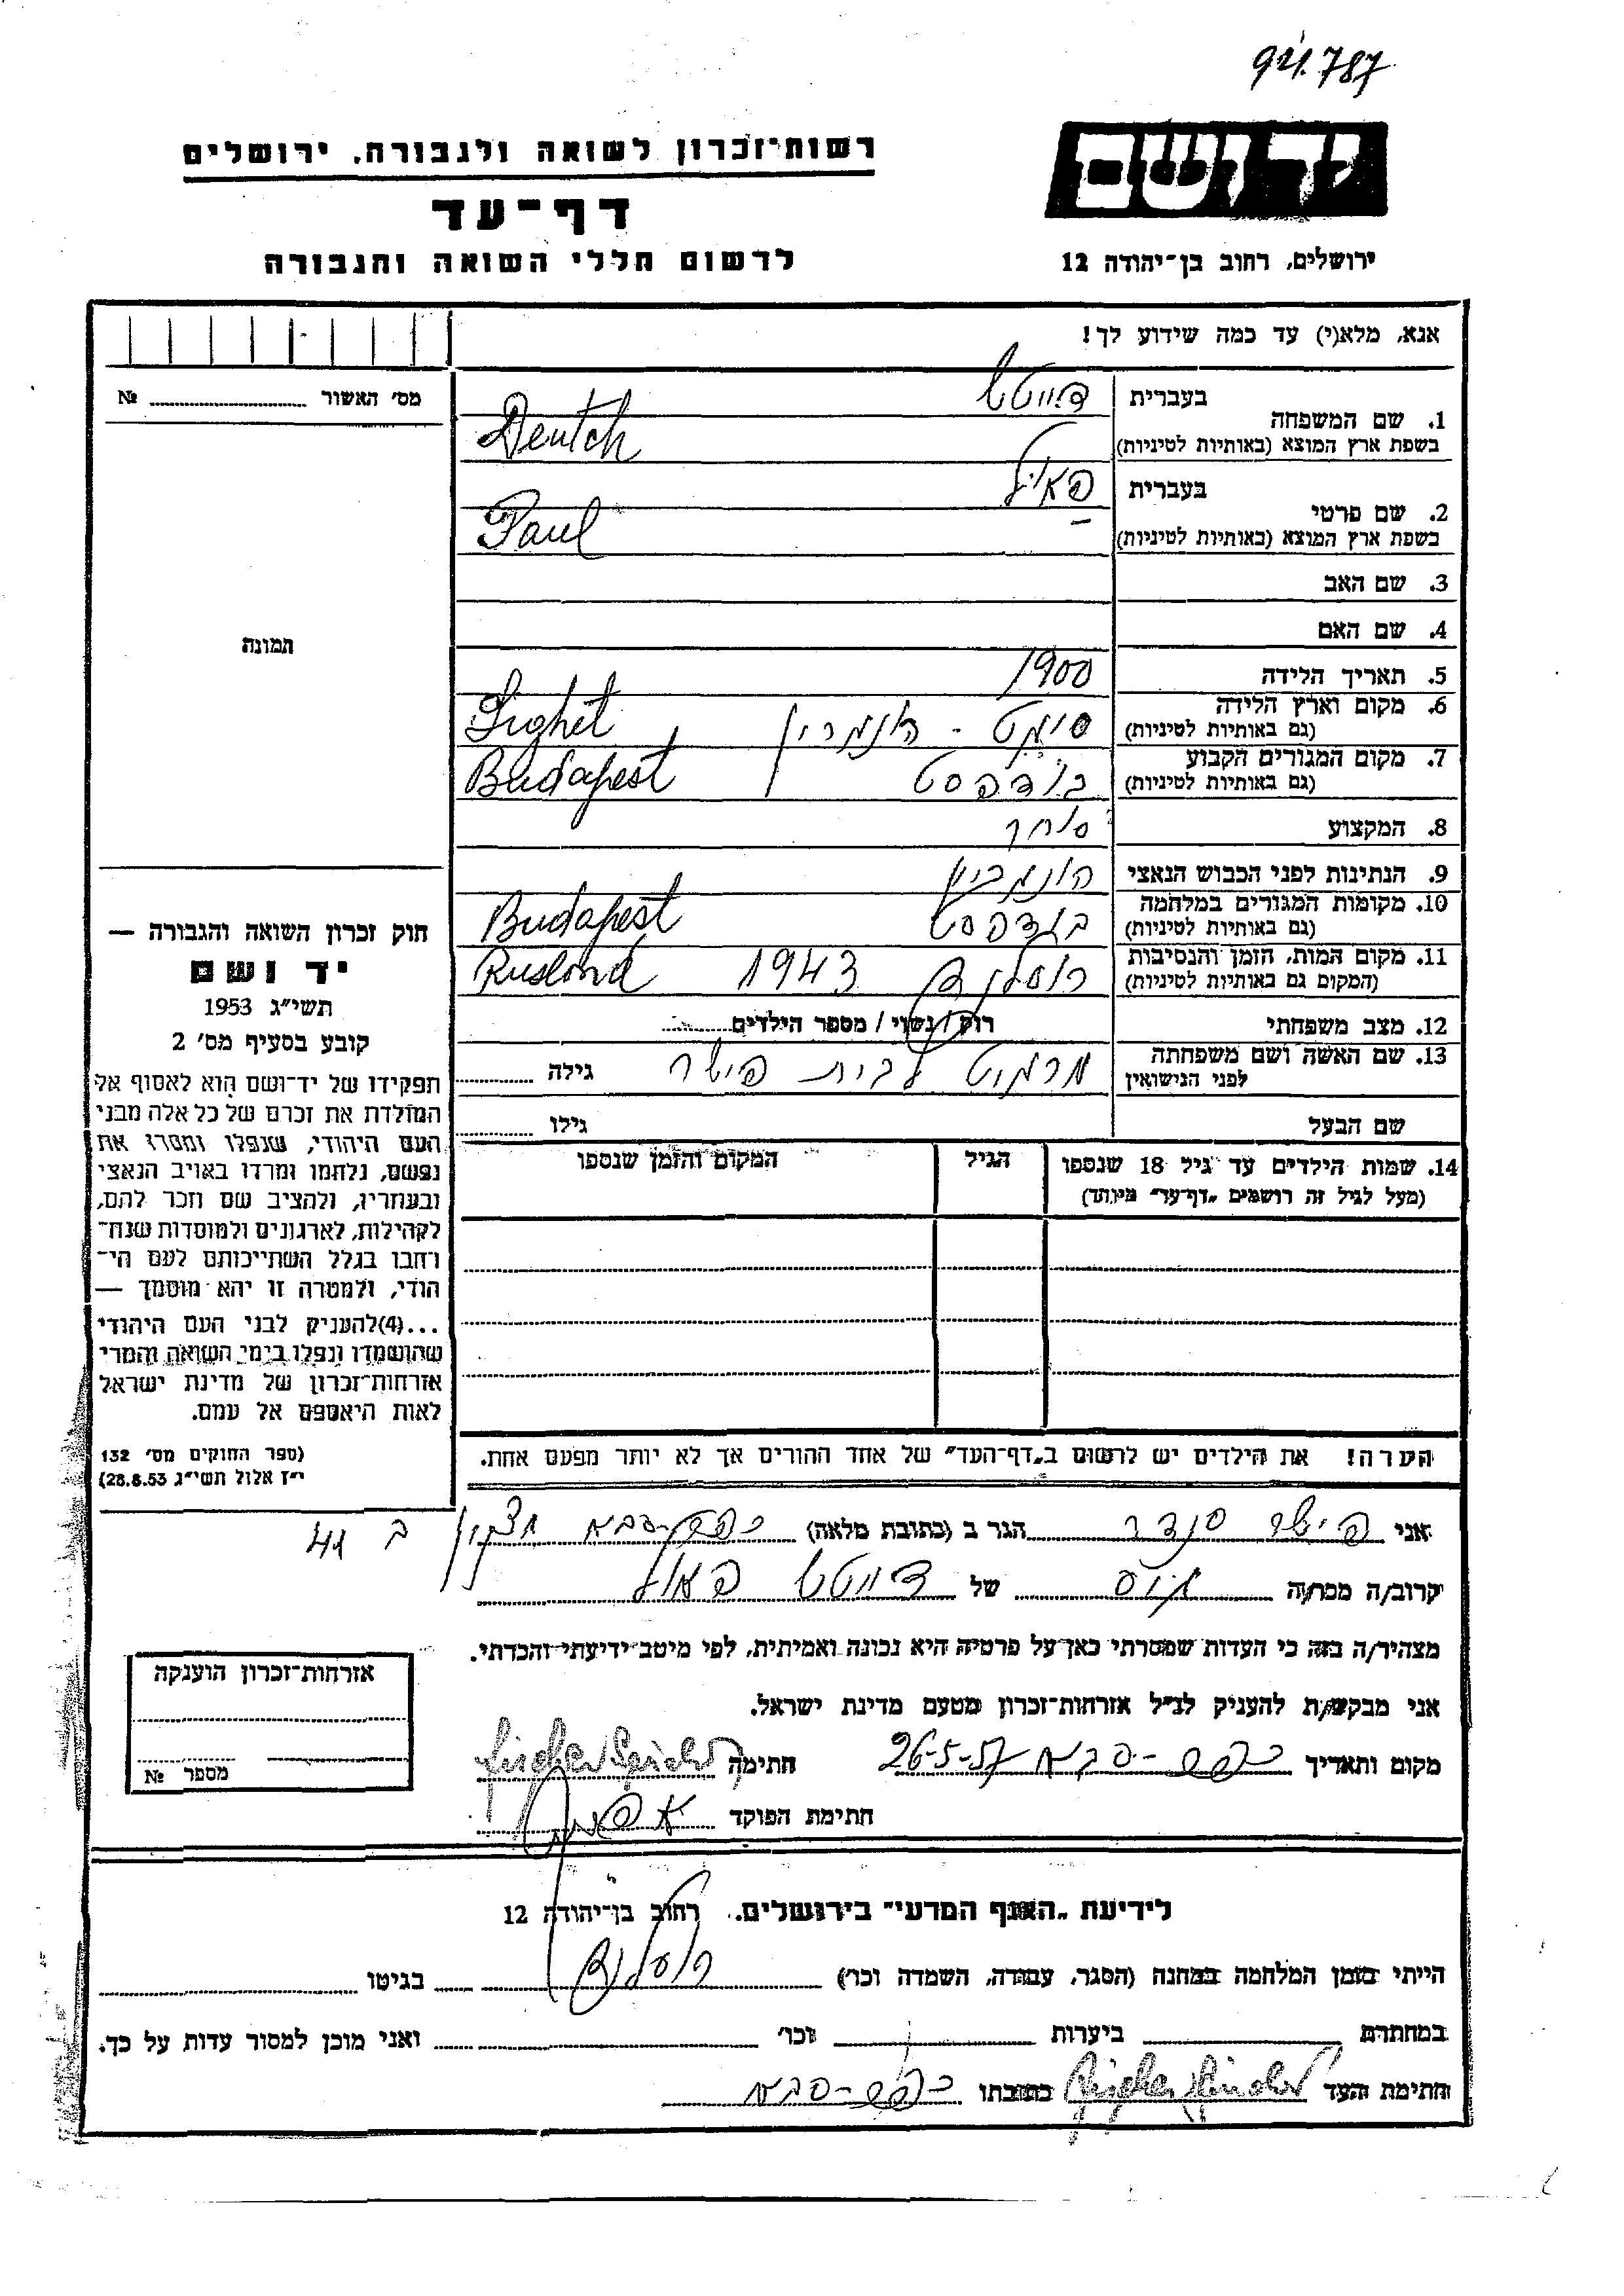 941.787
יד ושם
רשות־זכרון לשואה ולגבורה, ירושלים
דף־עד
לרשום חללי השואה והגבורה
ירושלים, רחוב בן־יהודה 12
אנא, מלא(י) עד כמה שידוע לך!
מס׳ האשור № 
1. שם המשפחה
בעברית דויטש
בשפת ארץ המוצא (באותיות לטיניות) Deutch
2. שם פרטי
בעברית פאול
בשפת ארץ המוצא (באותיות לטיניות) Paul
3. שם האב
4. שם האם
תמונה
5. תאריך הלידה 1900
6. מקום וארץ הלידה
(גם באותיות לטיניות) סיגט - Sighet
7. מקום המגורים הקבוע
(גם באותיות לטיניות) בודפסט Budapest
8. המקצוע סוחר
9. הנתינות לפני הכבוש הנאצי
10. מקומות המגורים במלחמה
(גם באותיות לטיניות) בודפסט Budapest
11. מקום המות, הזמן והנסיבות
(המקום גם באותיות לטיניות) רוסלנד 1943 Rusland
12. מצב משפחתי רווק / נשוי / מספר הילדים
13. שם האשה ושם משפחתה
לפני הנישואין מרגיט לבית פישר גילה
שם הבעל גילו
14. שמות הילדים עד גיל 18 שנספו
(מעל לגיל זה רושמים „דף־עד״ מיוחד)
הגיל
המקום והזמן שנספו
חוק זכרון השואה והגבורה —
יד ושם
תשי״ג 1953
קובע בסעיף מס׳ 2
תפקידו של יד־ושם הוא לאסוף אל
המולדת את זכרם של כל אלה מבני
העם היהודי, שנפלו ומסרו את
נפשם, נלחמו ומרדו באויב הנאצי
ובעוזריו, ולהציב שם וזכר להם,
לקהילות, לארגונים ולמוסדות שנח־
רבו בגלל השתייכותם לעם הי־
הודי, ולמטרה זו יהא מוסמך —
...(4)להעניק לבני העם היהודי
שהושמדו ונפלו בימי השואה והמרי
אזרחות־זכרון של מדינת ישראל
לאות היאספם אל עמם.
(ספר החוקים מס׳ 132
י״ז אלול תשי״ג 28.8.53)
הערה! את הילדים יש לרשום ב„דף־העד״ של אחד ההורים אך לא יותר מפעם אחת.
אני פישר סנדר הגר ב (כתובת מלאה) כפר-סבא ב 41
קרוב/ה מכר/ה גיס של דויטש פאול
מצהיר/ה בזה כי העדות שמסרתי כאן על פרטיה היא נכונה ואמיתית, לפי מיטב ידיעתי והכרתי.
אני מבקש/ת להעניק לנ״ל אזרחות־זכרון מטעם מדינת ישראל.
מקום ותאריך כפר-סבא 26-5-57 חתימה
חתימת הפוקד
אזרחות־זכרון הוענקה
מספר №
לידיעת „האגף המדעי״ בירושלים. רחוב בן־יהודה 12
הייתי בזמן המלחמה במחנה (הסגר, עבודה, השמדה וכו׳) רוסלנד בגיטו
במחתרת ביערות וכו׳ ואני מוכן למסור עדות על כך.
חתימת העד כתובתו כפר-סבא